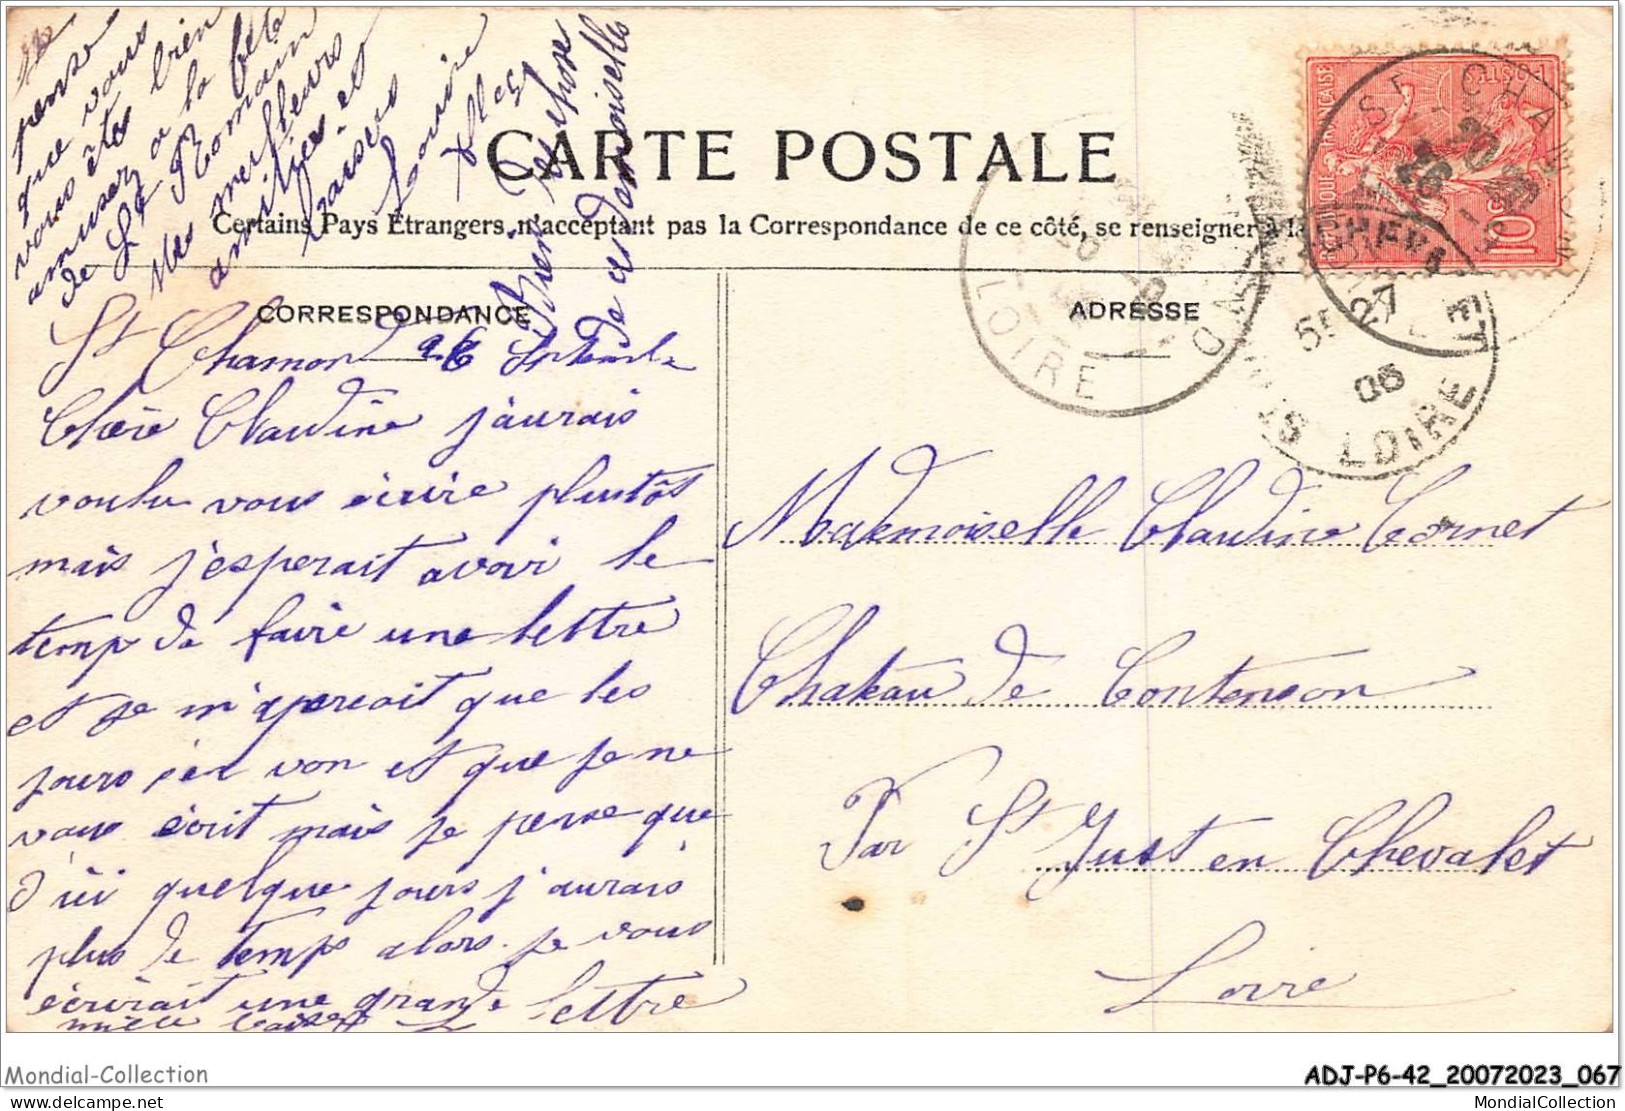 CARTE POSTALE
Certains Pays Étrangers n'acceptant pas la Correspondance de ce côté, se renseigner à la
CORRESPONDANCE
ADRESSE
St Chamond 26 Septembre
Chère Claudine j'aurais
voulu vous écrire plutôt
mais j'esperait avoir le
temp de faire une lettre
et je m'aperçoit que les
jours s'en von et que je ne
vous écrit mais je pense que
d'ici quelque jours j'aurais
plus de temps alors je vous
écrirait une grande lettre
pense
que vous
vous êtes bien
amuser a la fête
de St Romain
Mes meilleurs
amitiées et
baisers
Louise
Bien des chose
a ces Demoiselles
Mademoiselle Claudine Cornet
Chateau de Contenson
Par St Just en Chevalet
Loire
RÉPUBLIQUE FRANÇAISE
POSTES
10
ST CHAMOND
LOIRE
26
27
06
CHEVALET
LOIRE
Mondial-Collection
ADJ-P6-42_20072023_067
akpool.fr
MondialCollection